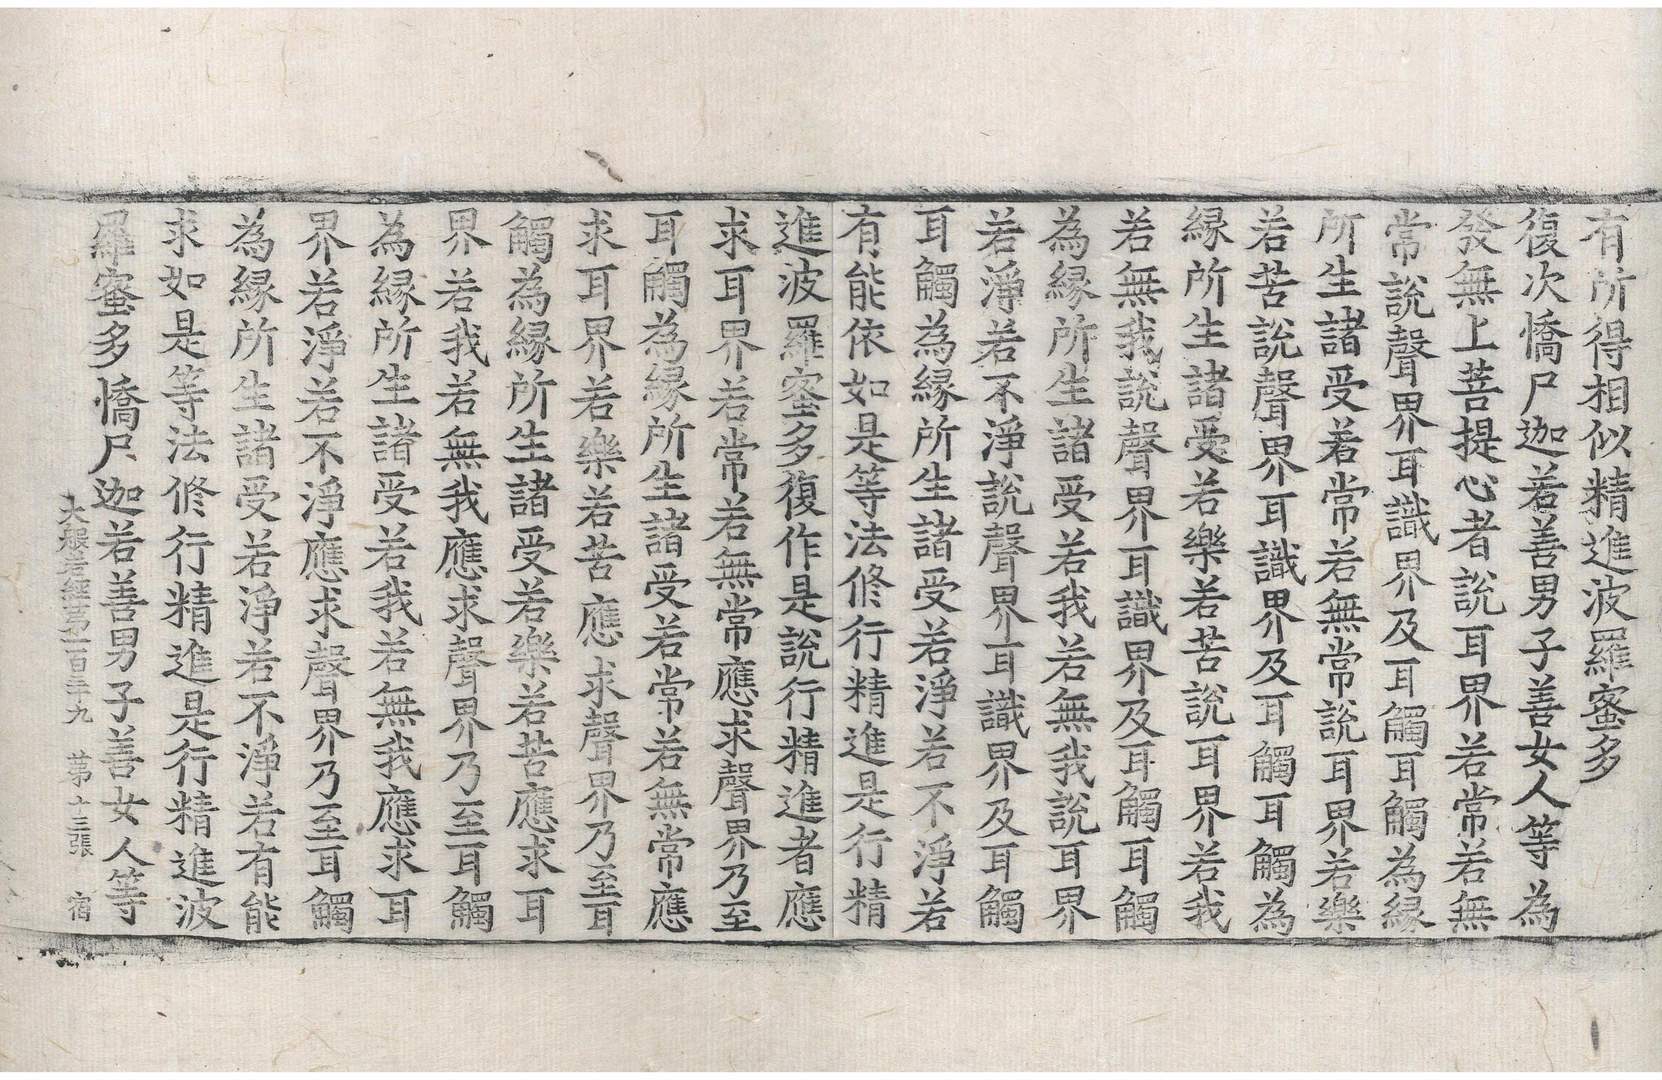 有所得相似精進波羅蜜多
復次憍尸迦若善男子善女人等為
發無上菩提心者說耳界若常若無
常說聲界耳識界及耳觸耳觸為縁
所生諸受若常若無常說耳界若樂
若苦說聲界耳識界及耳觸耳觸為
縁所生諸受若樂若苦說耳界若我
若無我說聲界耳識界及耳觸耳觸
為縁所生諸受若我若無我說耳界
若淨若不淨說聲界耳識界及耳觸
耳觸為縁所生諸受若淨若不淨若
有能依如是等法修行精進是行精
進波羅蜜多復作是說行精進者應
求耳界若常若無常應求聲界乃至
耳觸為縁所生諸受若常若無常應
求耳界若樂若苦應求聲界乃至耳
觸為縁所生諸受若樂若苦應求耳
界若我若無我應求聲界乃至耳觸
為縁所生諸受若我若無我應求耳
界若淨若不淨應求聲界乃至耳觸
為縁所生諸受若淨若不淨若有能
求如是等法修行精進是行精進波
羅蜜多憍尸迦若善男子善女人等
大般若經第一百三十九 第十三張 宿